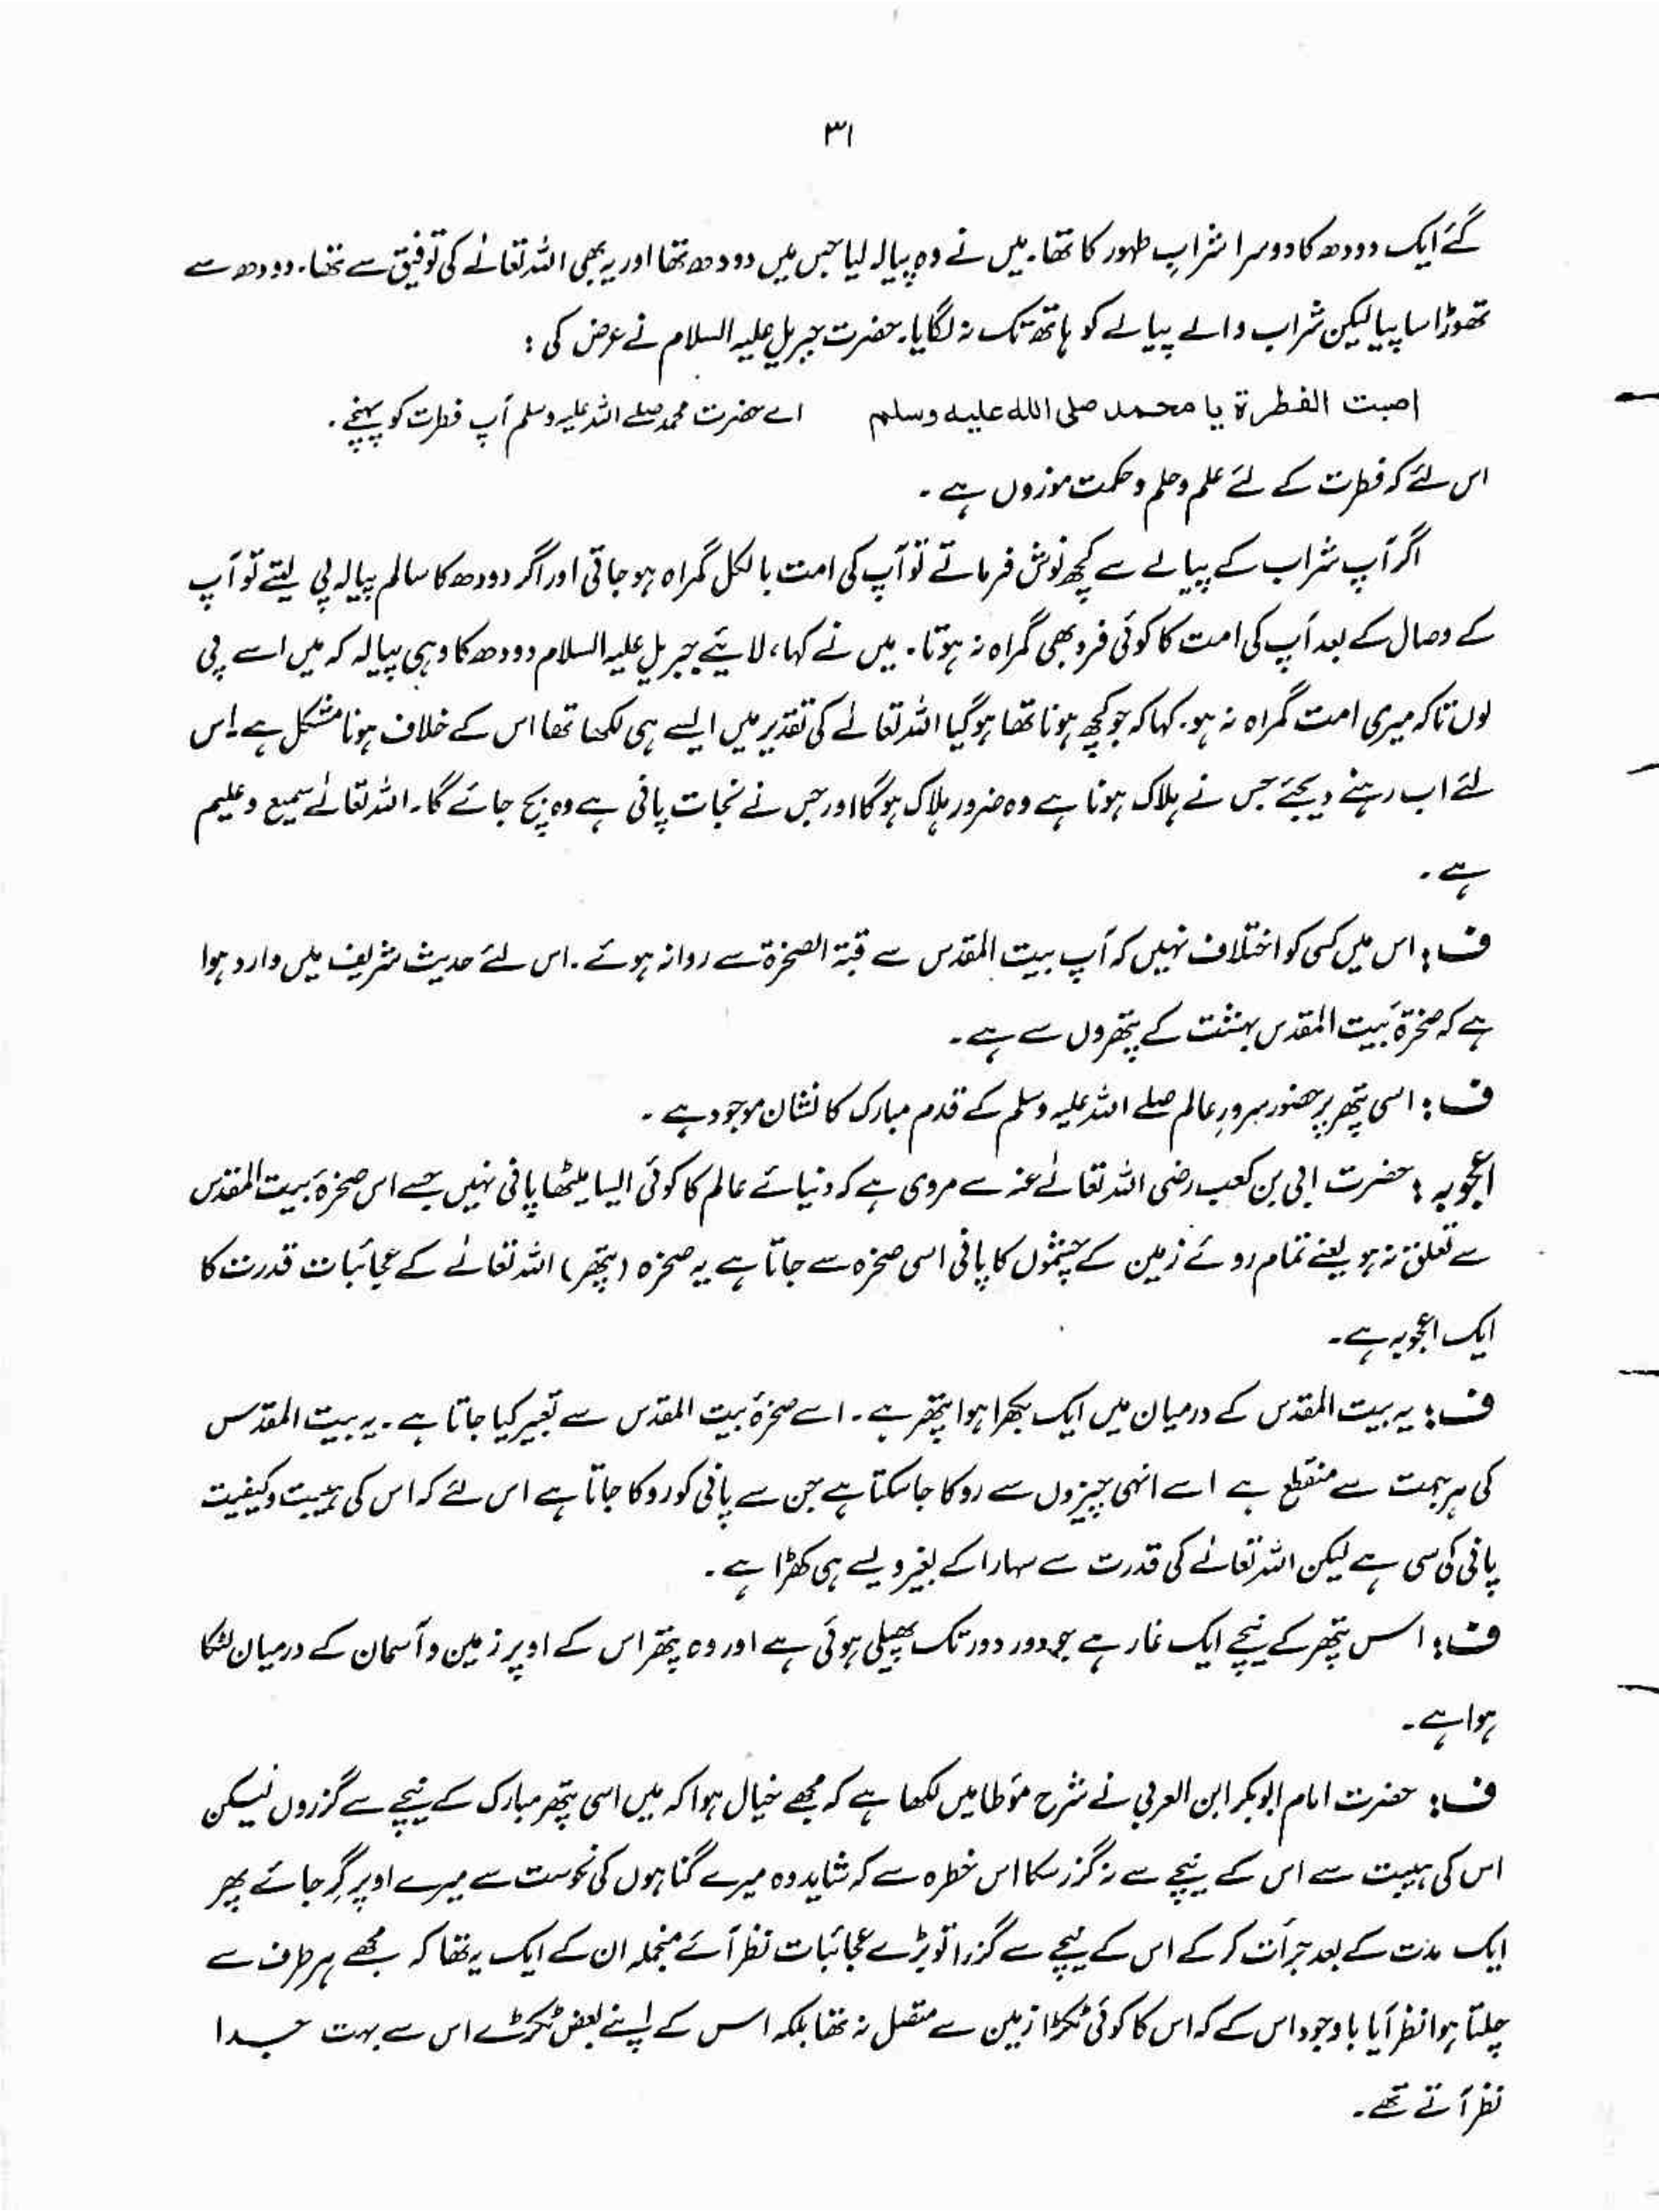 ۳۱
گئے ایک دودھ کا دوسرا شرابِ طہور کا تھا۔ میں نے وہ پیالہ لیا جس میں دودھ تھا اور یہ بھی اللہ تعالےٰ کی توفیق سے تھا۔ دودھ سے
تھوڑا سا پیا لیکن شراب والے پیالے کو ہاتھ تک نہ لگایا۔ حضرت جبریل علیہ السلام نے عرض کی :
اصبت الفطرة یا محمد صلی الله علیه وسلم اے حضرت محمد صلے اللہ علیہ وسلم آپ فطرت کو پہنچے۔
اس لئے کہ فطرت کے لئے علم و حلم و حکمت موزوں ہے۔
اگر آپ شراب کے پیالے سے کچھ نوش فرماتے تو آپ کی امت بالکل گمراہ ہو جاتی اور اگر دودھ کا سالم پیالہ پی لیتے تو آپ
کے وصال کے بعد آپ کی امت کا کوئی فرد بھی گمراہ نہ ہوتا۔ میں نے کہا، لائیے جبریل علیہ السلام دودھ کا وہی پیالہ کہ میں اسے پی
لوں تاکہ میری امت گمراہ نہ ہو۔ کہا کہ جو کچھ ہونا تھا ہو گیا اللہ تعالےٰ کی تقدیر میں ایسے ہی لکھا تھا اس کے خلاف ہونا مشکل ہے اس
لئے اب رہنے دیجئے جس نے ہلاک ہونا ہے وہ ضرور ہلاک ہوگا اور جس نے نجات پانی ہے وہ بچ جائے گا۔ اللہ تعالےٰ سمیع و علیم
ہے۔
ف : اس میں کسی کو اختلاف نہیں کہ آپ بیت المقدس سے قبۃ الصخرۃ سے روانہ ہوئے۔ اس لئے حدیث شریف میں وارد ہوا
ہے کہ صخرۃ بیت المقدس بہشت کے پتھروں سے ہے۔
ف : اسی پتھر پر حضور سرورِ عالم صلے اللہ علیہ وسلم کے قدم مبارک کا نشان موجود ہے۔
اعجوبہ : حضرت ابی بن کعب رضی اللہ تعالےٰ عنہ سے مروی ہے کہ دنیائے عالم کا کوئی ایسا میٹھا پانی نہیں جسے اس صخرۂ بیت المقدس
سے تعلق نہ ہو یعنے تمام روئے زمین کے چشموں کا پانی اسی صخرہ سے جاتا ہے یہ صخرہ (پتھر) اللہ تعالےٰ کے عجائبات قدرت کا
ایک اعجوبہ ہے۔
ف : یہ بیت المقدس کے درمیان میں ایک بکھرا ہوا پتھر ہے۔ اسے صخرۂ بیت المقدس سے تعبیر کیا جاتا ہے۔ یہ بیت المقدس
کی ہر جہت سے منقطع ہے اسے انہی چیزوں سے روکا جا سکتا ہے جن سے پانی کو روکا جاتا ہے اس لئے کہ اس کی ہیبت و کیفیت
پانی کی سی ہے لیکن اللہ تعالےٰ کی قدرت سے سہارا کے بغیر ویسے ہی کھڑا ہے۔
ف : اس پتھر کے نیچے ایک غار ہے جو دور دور تک پھیلی ہوئی ہے اور وہ پتھر اس کے اوپر زمین و آسمان کے درمیان لٹکا
ہوا ہے۔
ف : حضرت امام ابوبکر ابن العربی نے شرح مؤطا میں لکھا ہے کہ مجھے خیال ہوا کہ میں اسی پتھر مبارک کے نیچے سے گزروں لیکن
اس کی ہیبت سے اس کے نیچے سے نہ گزر سکا اس خطرہ سے کہ شاید وہ میرے گناہوں کی نحوست سے میرے اوپر گر جائے پھر
ایک مدت کے بعد جرأت کر کے اس کے نیچے سے گزرا تو بڑے عجائبات نظر آئے منجملہ ان کے ایک یہ تھا کہ مجھے ہر طرف سے
چلتا ہوا نظر آیا باوجود اس کے کہ اس کا کوئی ٹکڑا زمین سے متصل نہ تھا بلکہ اس کے اپنے بعض ٹکڑے اس سے بہت جدا
نظر آتے تھے۔